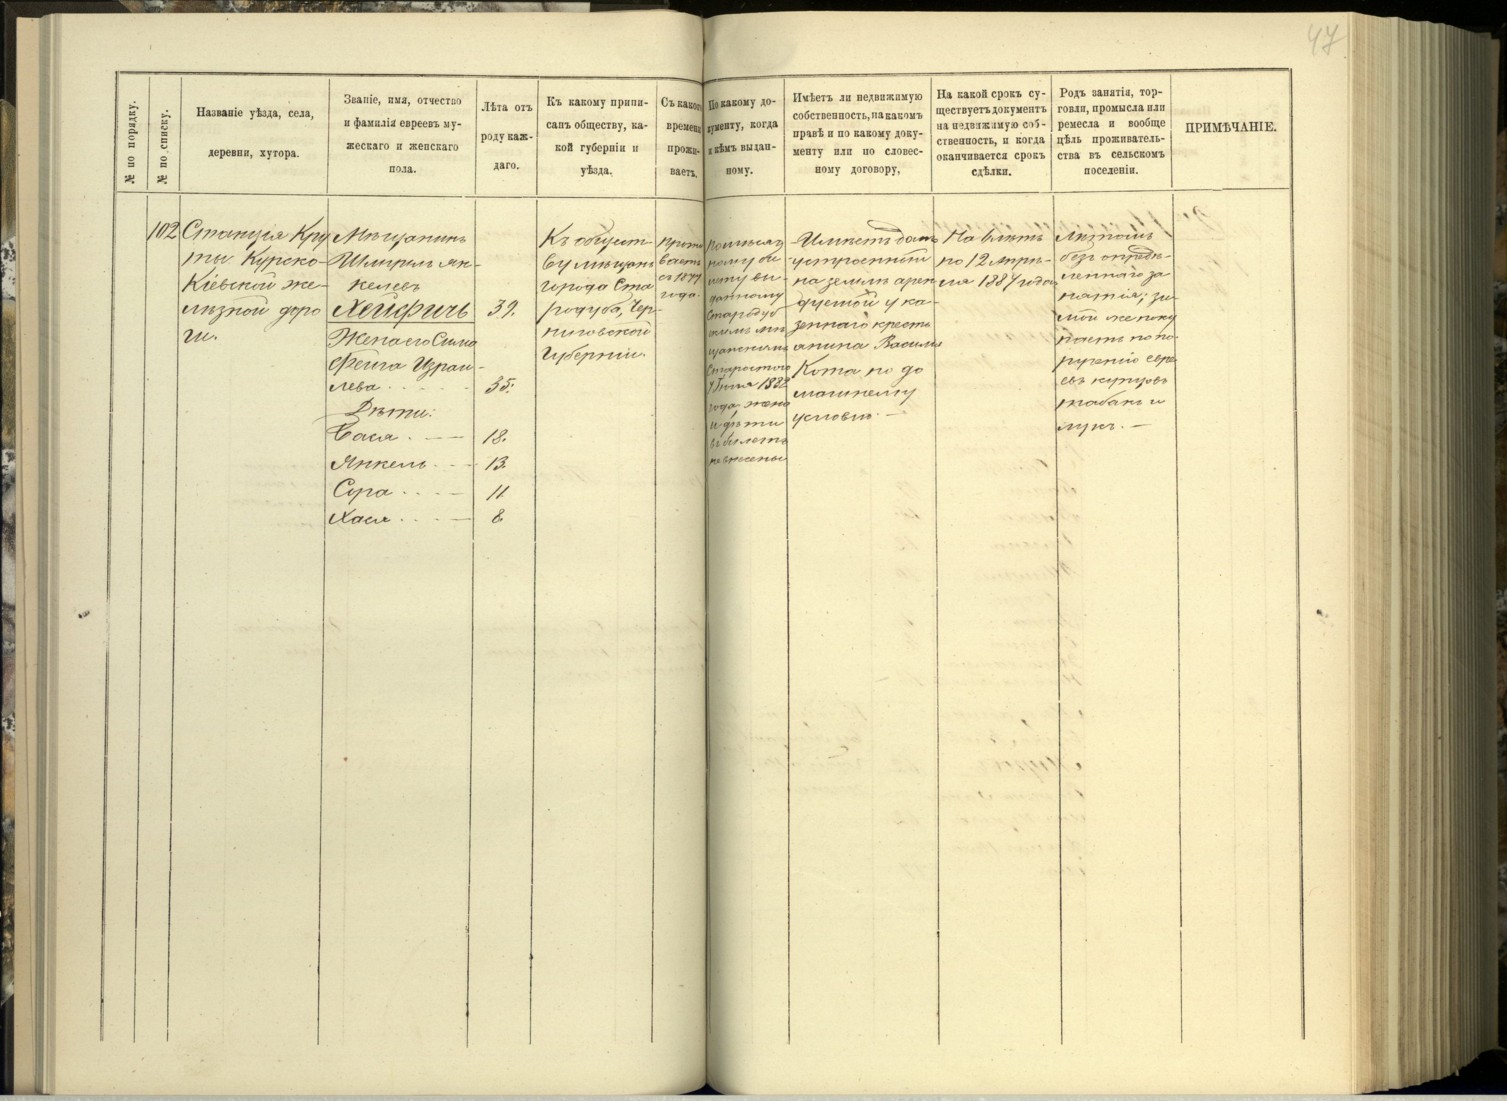 47
№ по порядку.
№ по списку.
Названіе уѣзда, села,
деревни, хутора.
Званіе, имя, отчество
и фамилія евреевъ му-
жескаго и женскаго
пола.
Лѣта отъ
роду каж-
даго.
Къ какому припи-
санъ обществу, ка-
кой губерніи и
уѣзда.
Съ какого
времени
прожи-
ваетъ.
По какому до-
кументу, когда
и кѣмъ выдан-
ному.
Имѣетъ ли недвижимую
собственность, на какомъ
правѣ и по какому доку-
менту или по словес-
ному договору,
На какой срокъ су-
ществуетъ документъ
на недвижимую соб-
ственность, и когда
оканчивается срокъ
сдѣлки.
Родъ занятія, тор-
говли, промысла или
ремесла и вообще
цѣль проживатель-
ства въ сельскомъ
поселеніи.
ПРИМѢЧАНІЕ.
102
Станція Кру
ты Курско-
Кіевской же-
лѣзной доро
ги.
Мѣщанинъ
Шмуель Ян-
келевъ
Хейфичъ
39.
Жена его Сима
Фейга Израи-
лева
35.
Дѣти:
Бася
18.
Янкель
13.
Сора
11.
Хася
8
Къ общест-
ву мѣщанъ
города Ста
родуба, Чер-
ниговской
Губерніи.
прожи
ваетъ
съ 1877
года.
по
ному би
лету вы-
данному
Стародуб
скимъ мѣ
щанскимъ
Старостою
7 Іюня 1882
года жена
и дѣти
въ билетъ
не внесены
Имѣетъ домъ
устроенный
на землѣ арен
дуемой у ка-
зеннаго кресть
янина Василія
Кота по до
машнему
условію. —
На 6 лѣтъ
по 12 Апрѣ-
ля 1887 года
безъ опредѣ-
леннаго за
нятія; зи-
мой же поку
паетъ по по-
рученію евре
евъ купцовъ
табакъ и
лукъ. —